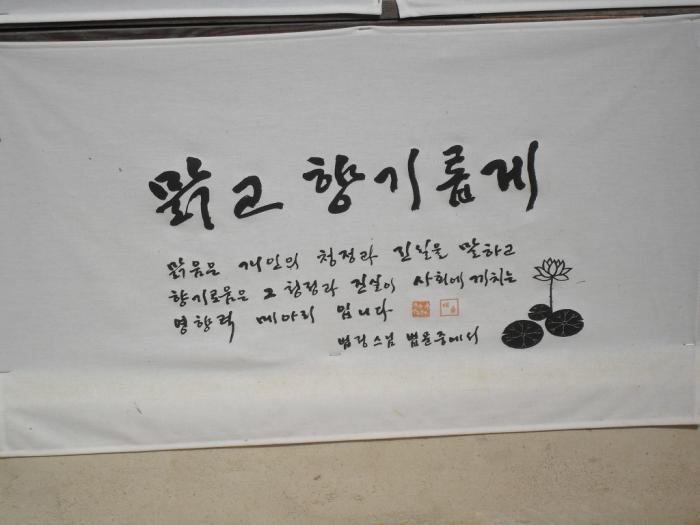 맑고 향기롭게
맑음은 개인의 청정과 진실을 말하고
향기로움은 그 청정과 진실이 사회에 끼치는
영향력 메아리 입니다
법정스님 법문중에서